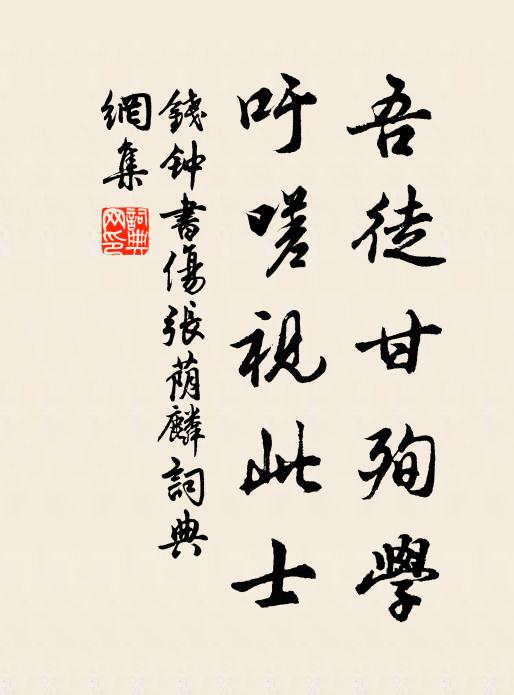 吾徒甘殉學
吁嗟視此士
錢钟書傷張荫麟詞典
網集
詞典網印